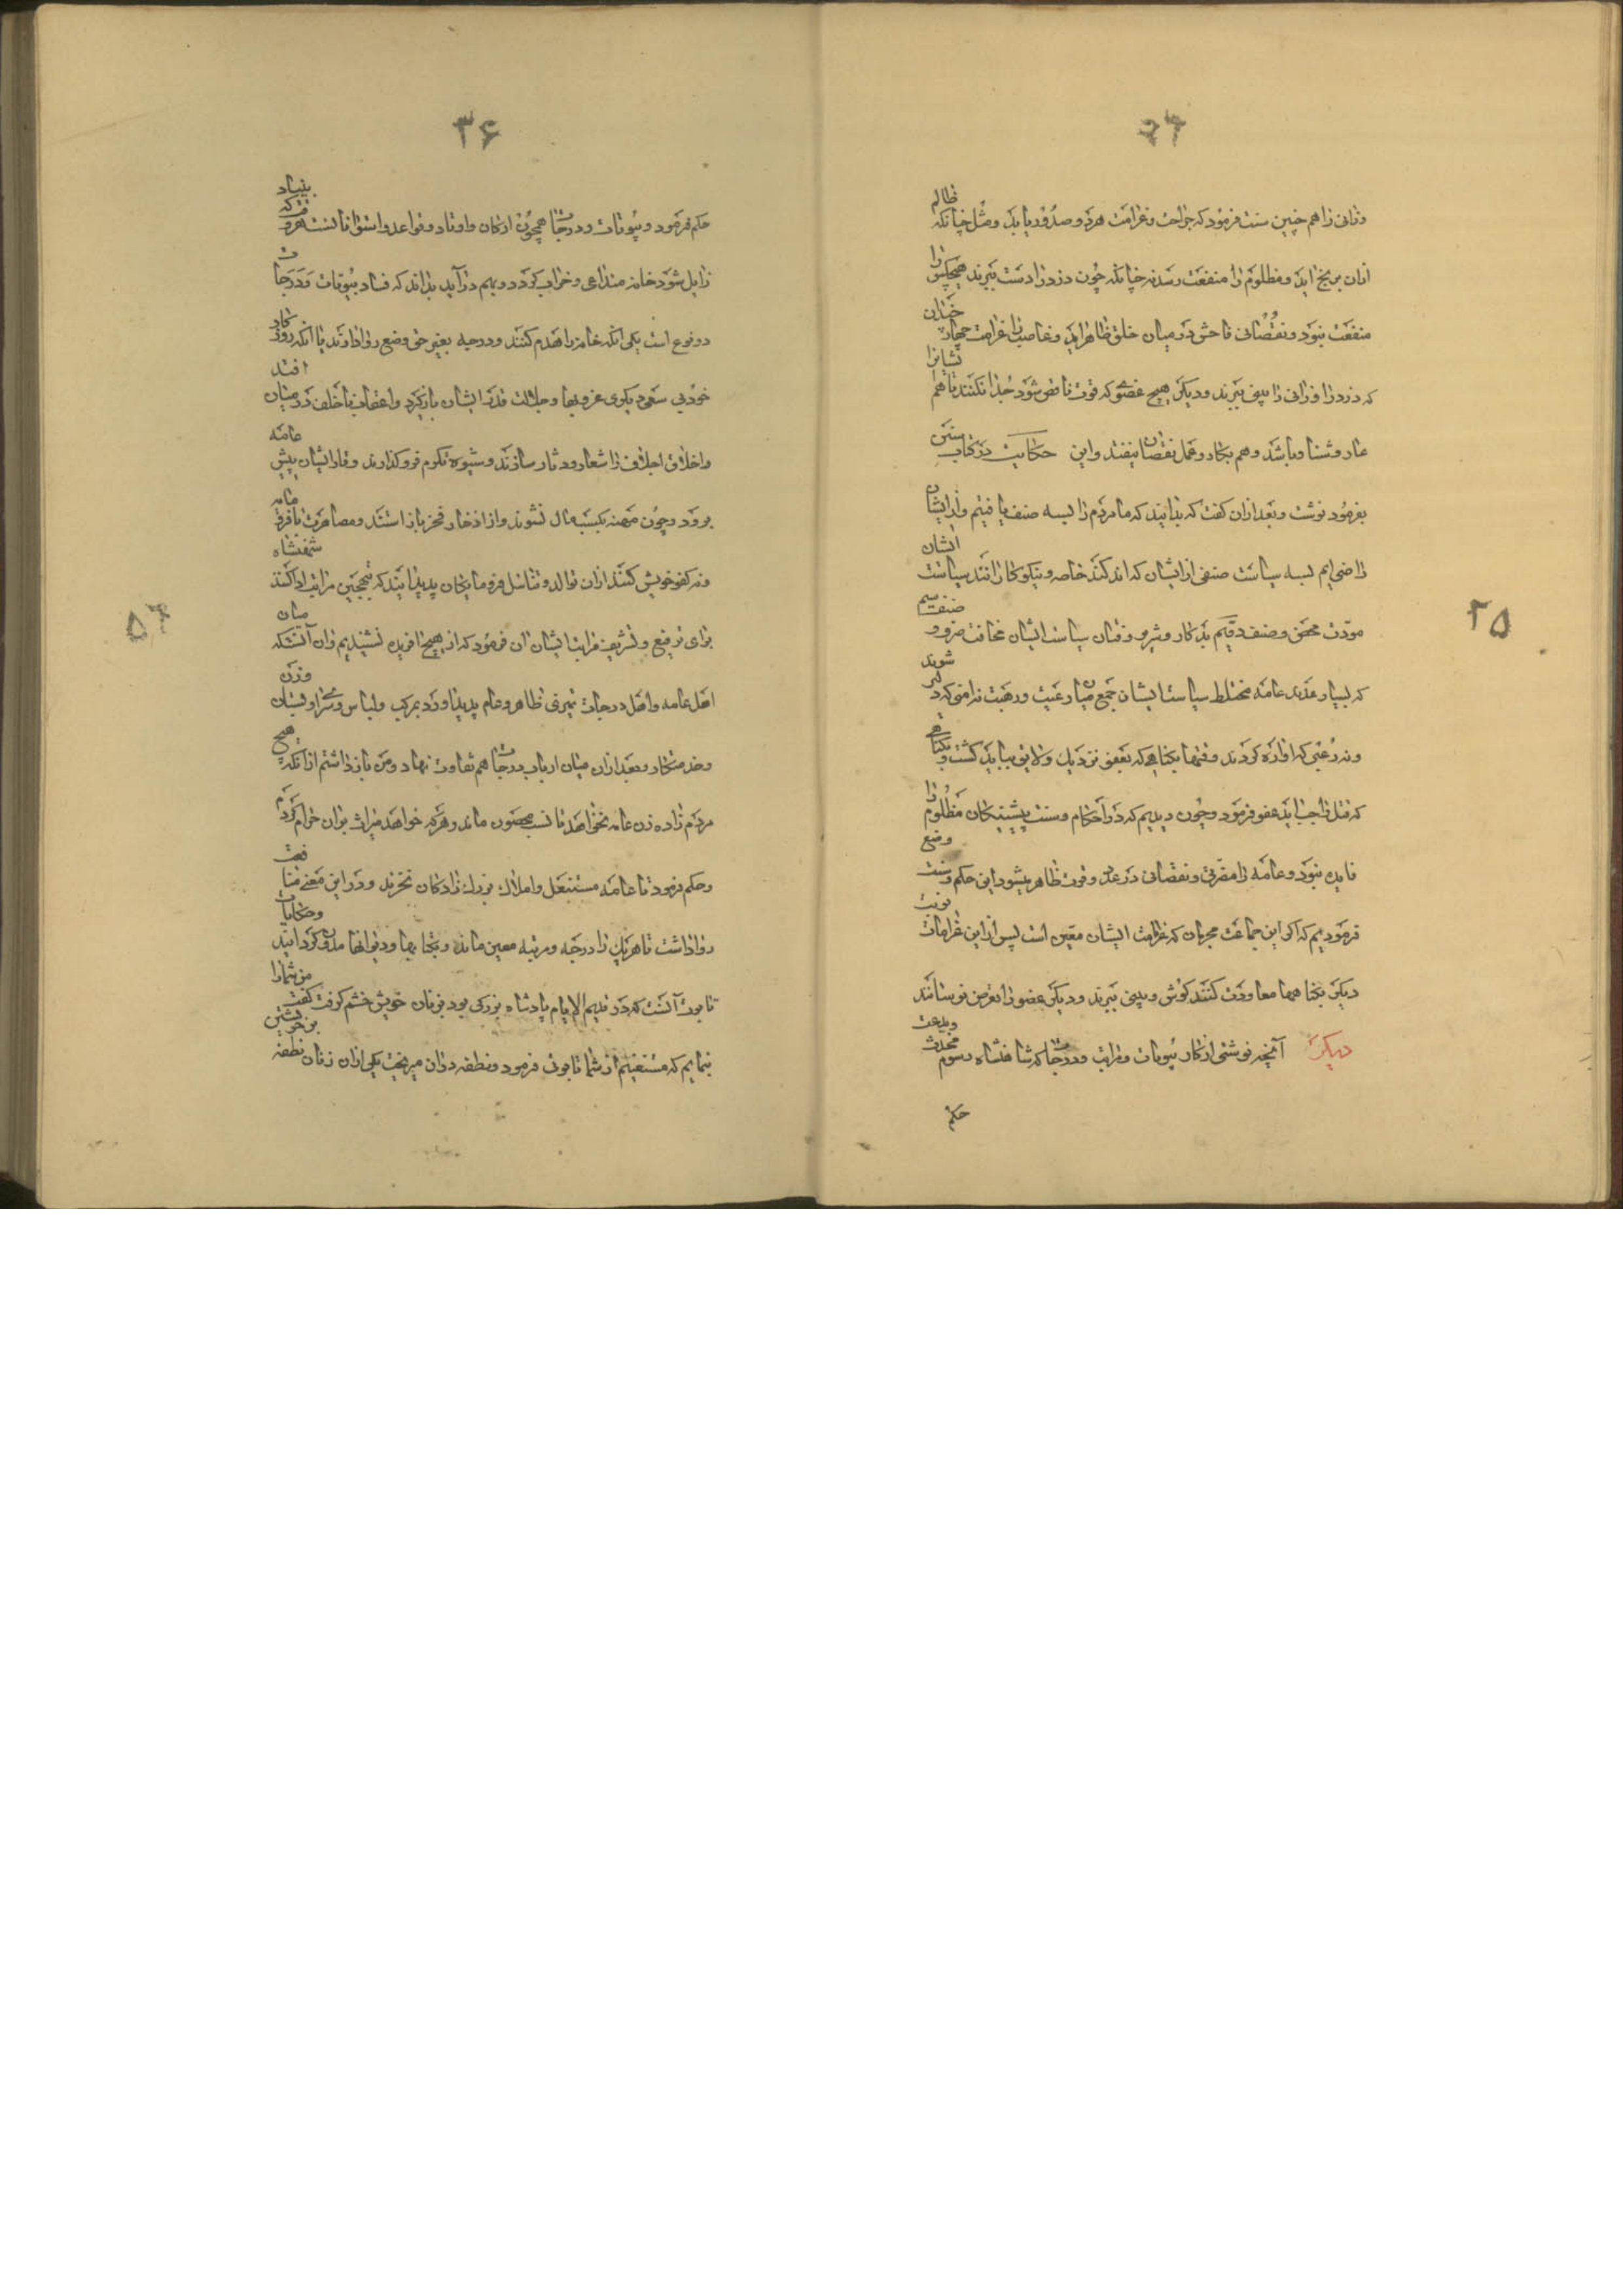 ۲۵
وزانی را هم چنین سنت فرمود که جراحت و غرامت هر دو صدور یابد و مثل چنانکه ظالم
ازان برنج آید و مظلوم را منفعت رسد نه چنانکه چون دزد را دست ببرند هیچکس را
منفعت نبود و نقصانی فاحش در میان خلق ظاهر آید و غاصب را غرامت چهار چندان
که دزد را و زانی را بینی ببرند و دیگر هیچ عضوی که قوت ناقص شود جدا نکنند تا هم نشانرا
عار و شنار باشد و هم بکار و عمل نقصان نیفتد و این حکایت در کتاب سنن
بفرمود نوشت و بعد ازان گفت که بدانید که ما مردم را بسه صنف یافتیم و از ایشان
راضی ایم بسه سیاست صنفی از ایشان که اندکند خاصه و نیکوکارانند سیاست ایشان
مودت محض و صنف دویم بدکار و شریر و فتان سیاست ایشان مخافت صرف و صنف سیم
که بسیار عددند عامه مختلط سیاست ایشان جمع میان رغبت و رهبت نه امنی که دلیر شوند
و نه رعبی که آواره گردند و وقتها بگناهی که بعفو نزدیک و لایق بباید کشت و بگناهی
که قتل واجب آید عفو فرمود و چون دیدیم که در احکام و سنت پیشینگان مظلوم را
فایده نبود و عامه را مضرت و نقصانی در عدد و قوت ظاهر میشود این حکم و سنت وضع
فرمودیم که اگر این جماعت مجرمان که غرامت ایشان معین است پس ازین غرامات نوبت
دیگر بگناهها معاودت کنند گوش و بینی ببرند و دیگر عضو را تعرض نرسانند
دیگر آنچه نوشتی از کار بیوتات و مراتب و درجات که شاهنشاه رسوم محدث و بدعت
حکم
۳۶
حکم فرمود و بیوتات و درجات همچون ارکان و اوتاد و قواعد و اسطوانات است هر وقت که بنیاد
زایل شود خانه متداعی و خراب گردد و بهم درآید بداند که فساد بیوتات و درجات
دو نوع است یکی آنکه خانه را هدم کنند و درجه بغیر حق وضع روا دارند یا آنکه روزگار
خود بی سعی دیگری عز و بها و جلالت قدر ایشان بازگیرد و اعقاب ناخلف در میان افتند
و اخلاق اجلاف را شعار و دثار سازند و شیوه تکرم فروگذارند و وقار ایشان پیش عامه
برود و چون مهنه بکسب مال نشوند و از ادخار فخر باز استند و مصاهرت با فرومایه
و نه کفو خویش کنند ازان توالد و تناسل فرومایگان پدید آیند که بتهجین مراتب ادا کنند شهنشاه
برای ترفیع و تشریف مراتب ایشان آن فرمود که از هیچ آفریده نشنیدیم و آن آنست که میان
اهل عامه و اهل درجات تمیزی ظاهر و عام پدید آورد بمرکب و لباس و سرای و بستان و زن
و خدمتکار و بعد ازان میان ارباب درجات هم تفاوت نهاد و من بازداشتم از آنکه هیچ
مردم زاده زن عامه نخواهد تا نسب محصون ماند و هر که خواهد میراث بران حرام کردم
و حکم فرمود تا عامه مستغل و املاک بزرگ زادگان نخرند و در این معنی مبالغت
روا داشت تا هر یک را درجه و مرتبه معین ماند و بکتابها و دیوانها مدون گردانید و حکایات
تابوت آنست که در قدیم الایام پادشاه بزرگی بود بر زنان خویش خشم گرفت گفت من شما را
بنمایم که مستغنیم از شما تابوتی فرمود و نطفه دران میریخت یکی ازان زنان نطفه بر خویشتن